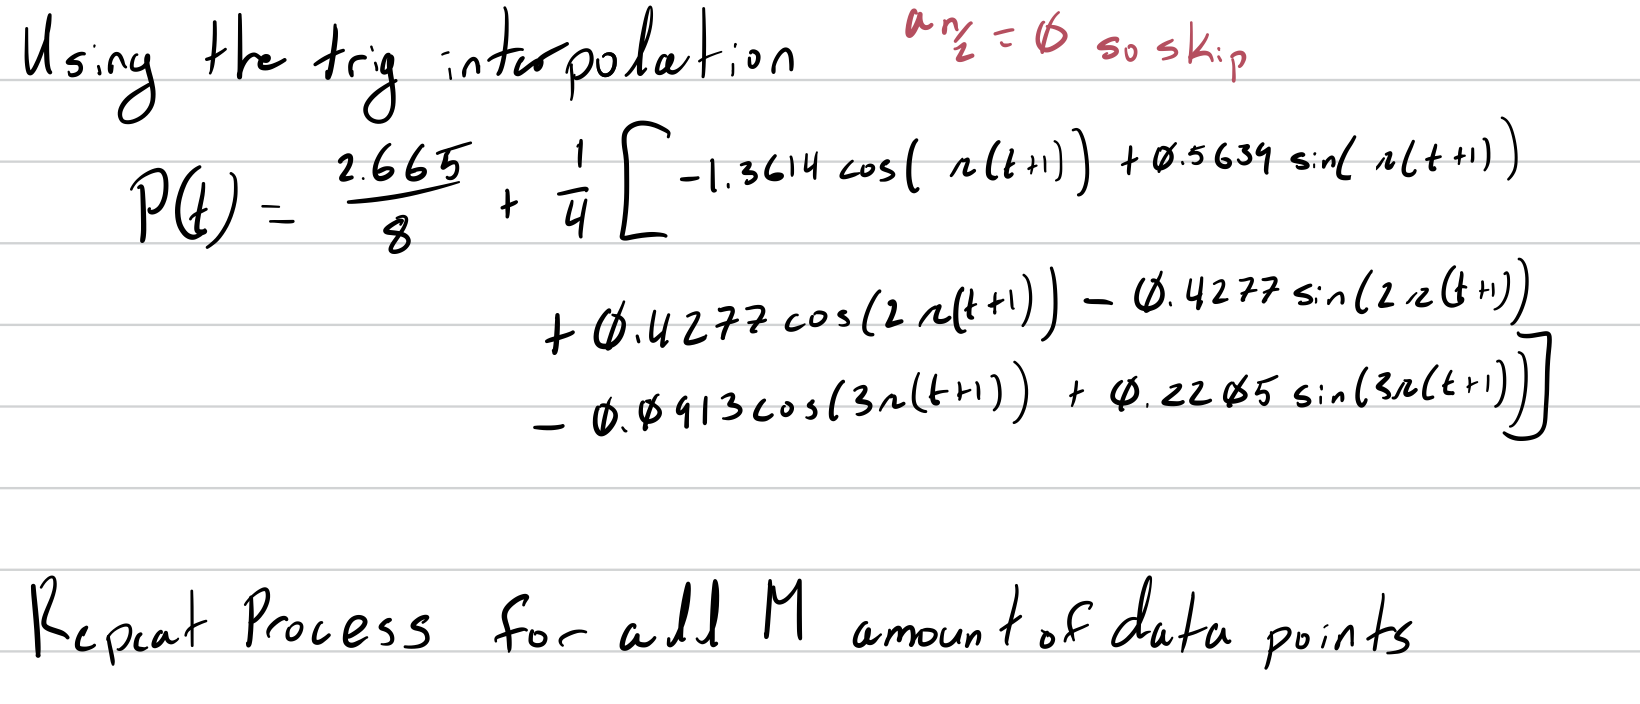 Using the trig interpolation
a n/2 = 0 so skip
P(t) = 2.665/8 + 1/4 [ -1.3614 cos( π(t+1)) + 0.5639 sin( π(t+1))
+ 0.4277 cos(2π(t+1)) - 0.4277 sin(2π(t+1))
- 0.0913 cos(3π(t+1)) + 0.2205 sin(3π(t+1)) ]
Repeat Process for all M amount of data points